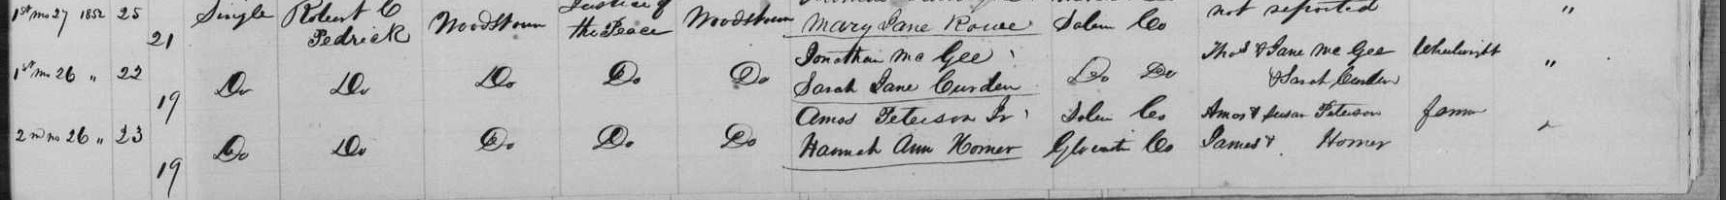 1st mo 27 1852 25 Single Robert C Justice of not reported "
21 Pedrick Woodstown the Peace Woodstown Mary Jane Rowe Salem Co
Jonathan Mc Gee Thos & Jane Mc Gee Wheelwright
1st mo 26 " 22 Do Do Do Do Do Sarah Jane Curden Do Do & Sarah Curden "
19 Amos Peterson Jr Salem Co Amos & Susan Peterson farmer
2nd mo 26 " 23 Do Do Do Do Do Hannah Ann Horner Glocester Co James & Horner "
19